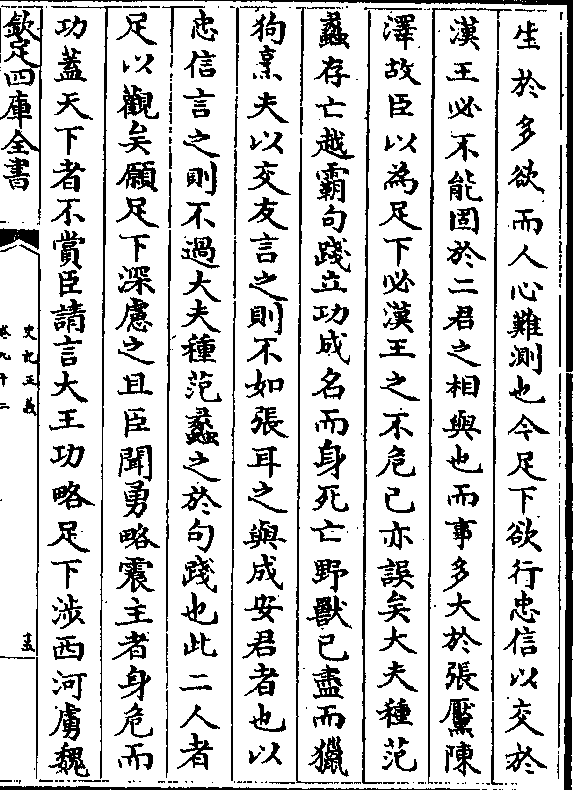 生於多欲而人心難測也今足下欲行忠信以交於
漢王必不能固於二君之相與也而事多大於張黶陳
澤故臣以為足下必漢王之不危已亦誤矣大夫種范
蠡存亡越霸句踐立功成名而身死亡野獸已盡而獵
狗烹夫以交友言之則不如張耳之與成安君者也以
忠信言之則不過大夫種范蠡之於句踐也此二人者
足以觀矣願足下深慮之且臣聞勇略震主者身危而
功蓋天下者不賞臣請言大王功略足下涉西河虜魏
欽定四庫全書
史記正義
卷九十二